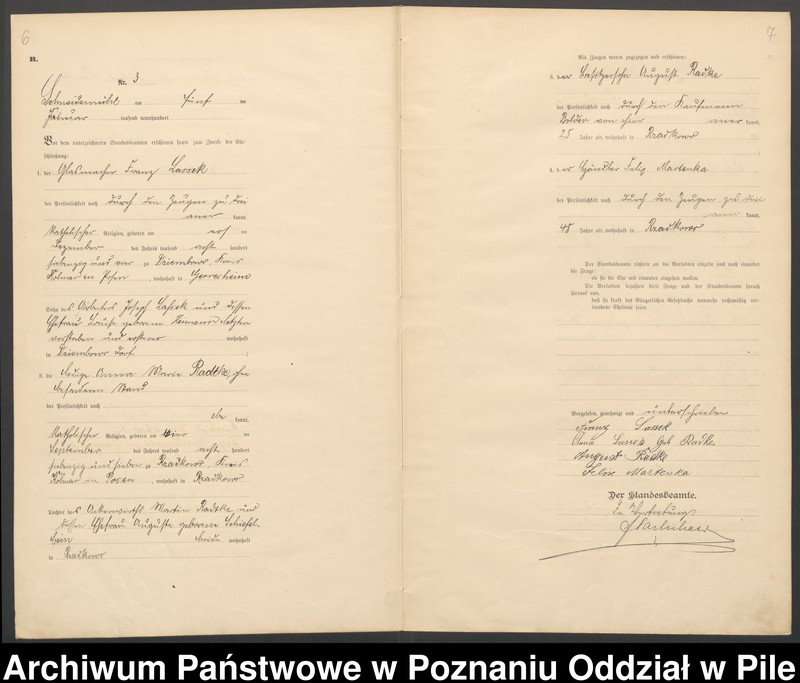 6
B.
Nr. 3
Schneidemühl am fünf ten
Februar tausend neunhundert
Vor dem unterzeichneten Standesbeamten erschienen heute zum Zwecke der Ehe-
schließung:
1. der Glasmacher Franz Lassek
der Persönlichkeit nach durch den Zeugen zu drei
aner kannt,
katholischer Religion, geboren am ten
Dezember des Jahres tausend acht hundert
siebenzig und vier zu Dziembowo, Kreis
Kolmar in Posen, wohnhaft in
Sohn des Arbeiters Josef Lassek und dessen
Ehefrau Louise geborene Neimann letztere
verstorben und ersterer wohnhaft
in Dziembowo Dorf
2. die ledige Anna Marie Radtke, ohne
besonderen Stand
der Persönlichkeit nach
kannt,
katholischer Religion, geboren am vier ten
September des Jahres tausend acht hundert
siebenzig und sieben zu Rzadkowo, Kreis
Kolmar in Posen, wohnhaft in Rzadkowo
Tochter des Ackerwirths Martin Radtke und
dessen Ehefrau Auguste geborene Schiefel-
bein beide wohnhaft
in Rzadkowo
7
Als Zeugen waren zugezogen und erschienen:
3. der Besitzersohn August Radke
der Persönlichkeit nach durch den Kaufmann
von hier aner kannt,
25 Jahre alt, wohnhaft in Rzadkowo
4. der Händler Felix Martenka
der Persönlichkeit nach durch den Zeugen zu drei
aner kannt,
48 Jahre alt, wohnhaft in Rzadkowo
Der Standesbeamte richtete an die Verlobten einzeln und nach einander
die Frage:
ob sie die Ehe mit einander eingehen wollen.
Die Verlobten bejahten diese Frage und der Standesbeamte sprach
hierauf aus,
daß sie kraft des Bürgerlichen Gesetzbuchs nunmehr rechtmäßig ver-
bundene Eheleute seien.
Vorgelesen, genehmigt und unterschrieben
Franz Lassek
Anna Lassek Geb Radke
August Radke
Felix Martenka
Der Standesbeamte.
In Vertretung
Archiwum Państwowe w Poznaniu Oddział w Pile